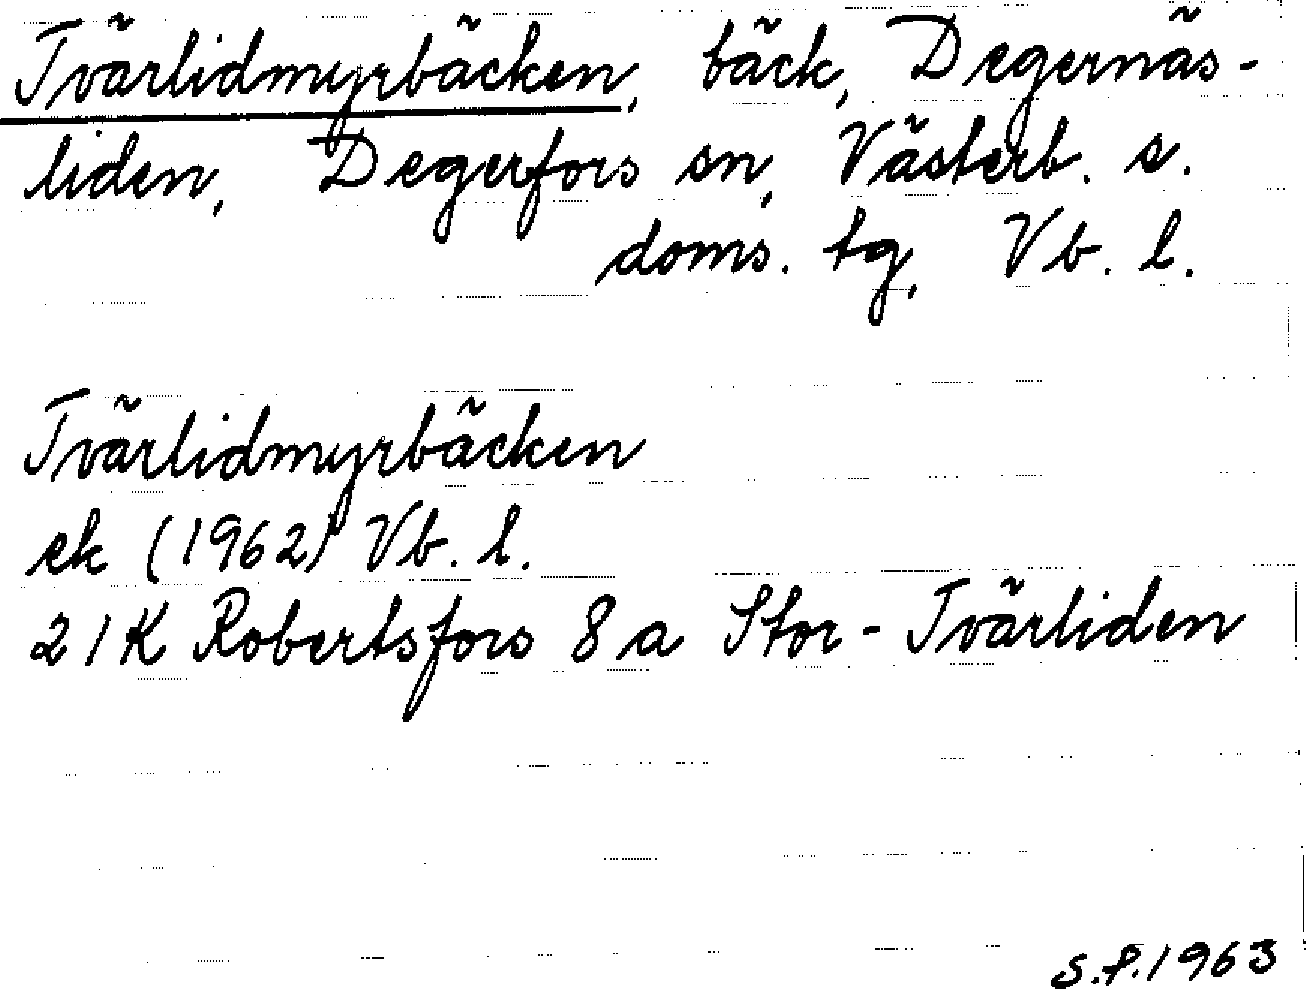 Tvärlidmyrbäcken, bäck, Degernäs-
liden, Degerfors sn, Västerb. s.
doms. tg, Vb. l.
Tvärlidmyrbäcken
ek (1962) Vb. l.
21K Robertsfors 8a Stor-Tvärliden
S.P. 1963